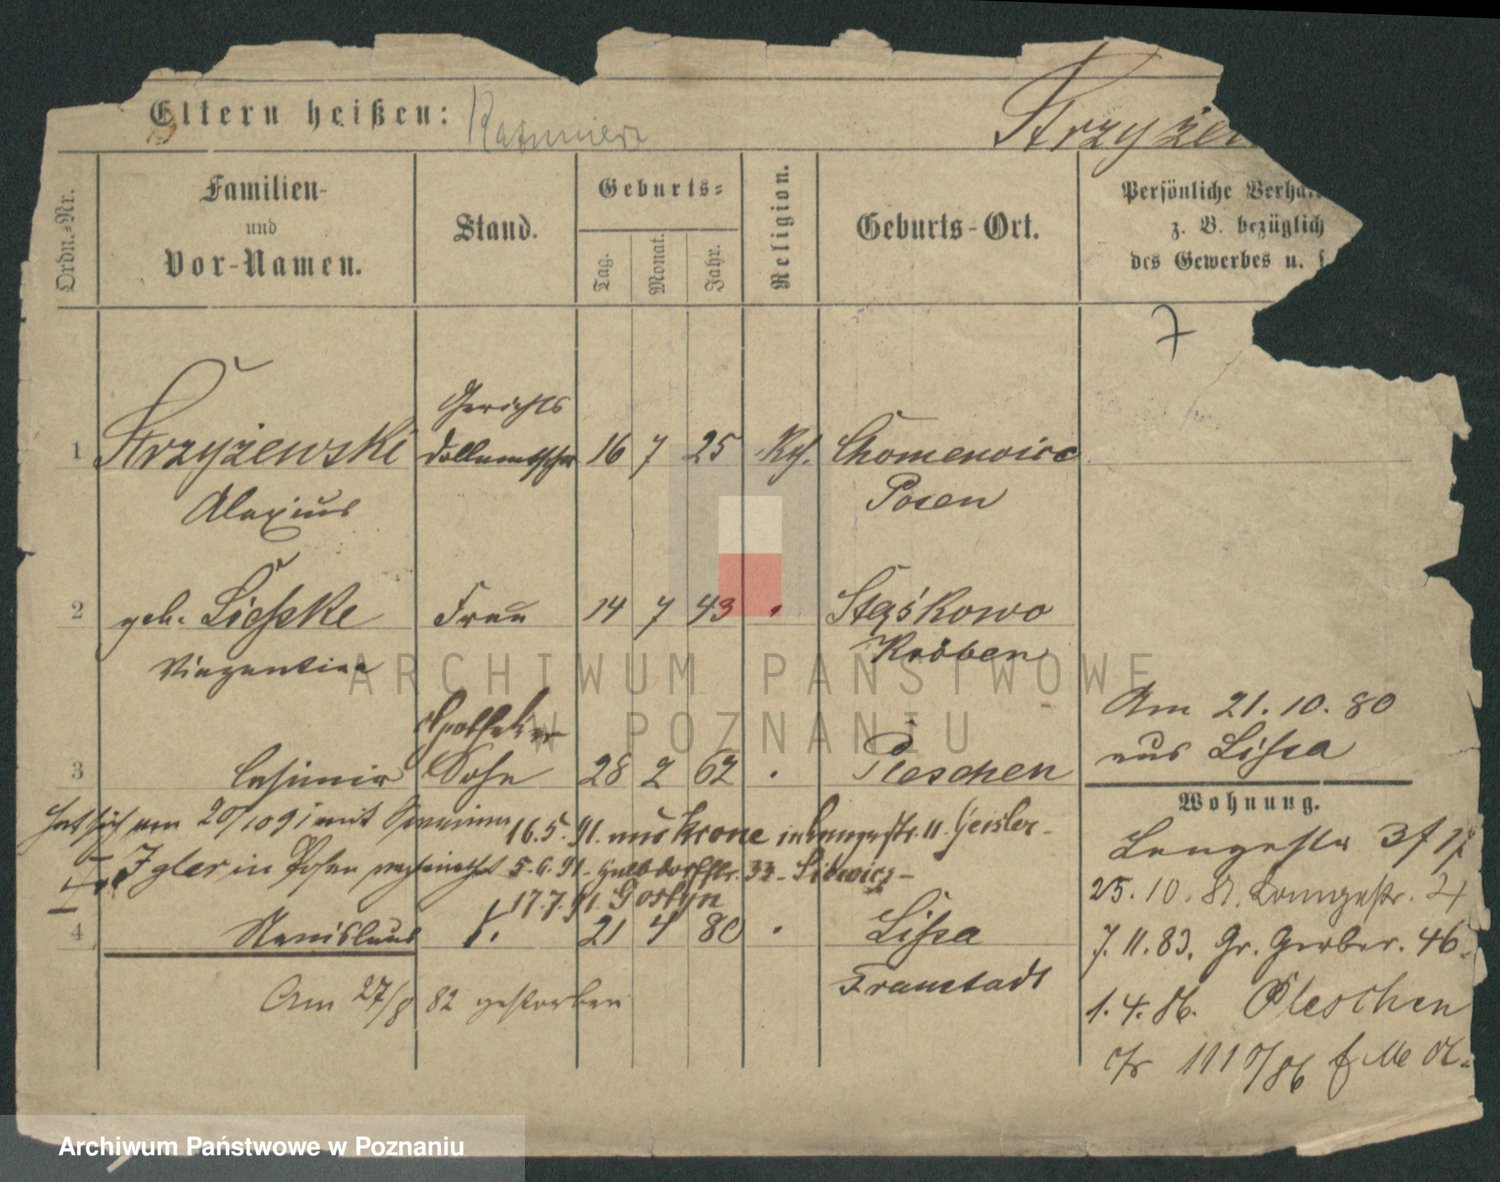 Eltern heißen: Kazimierz
Strzyżew
Ordn.-Nr.
Familien-
und
Vor-Namen.
Stand.
Geburts-
Tag.
Monat.
Jahr.
Religion.
Geburts-Ort.
Persönliche Verhä
z. B. bezüglich
des Gewerbes u. s
7
Gerichts
1 Strzyżewski Dollmetscher 16 7 25 Kth. Chomencice
Alexius Posen
2 geb. Liepke Frau 14 7 43 Stęśkowo
Vinzentina Kröben
Apotheker
3 Casimir Sohn 28 2 62 Pleschen
Am 21.10.80
aus Lissa
Wohnung.
hat sich am 20/10 91 mit
16.5.91. aus Krone in Langestr. 11. Geisler
Igler in Posen 5.6.91. Halbdorfstr. 33
17.7.91. Gostyn
4 Stanislaus S. 21 4 80 Lissa
Fraustadt
Am 27/8 82 gestorben
Langestr 3
25.10.81. Langestr. 4
7.11.83. Gr. Gerber. 46.
1.4.86. Pleschen
ARCHIWUM PAŃSTWOWE
W POZNANIU
Archiwum Państwowe w Poznaniu